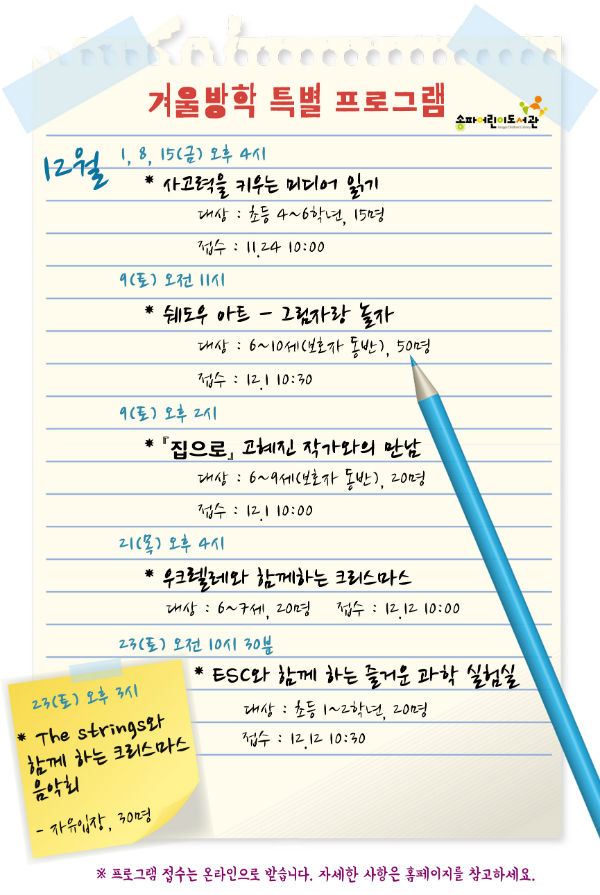 겨울방학 특별 프로그램
송파어린이도서관
12월
1, 8, 15(금) 오후 4시
* 사고력을 키우는 미디어 읽기
대상 : 초등 4~6학년, 15명
접수 : 11.24 10:00
9(토) 오전 11시
* 쉐도우 아트 - 그림자랑 놀자
대상 : 6~10세(보호자 동반), 50명
접수 : 12.1 10:30
9(토) 오후 2시
* 『집으로』 고혜진 작가와의 만남
대상 : 6~9세(보호자 동반), 20명
접수 : 12.1 10:00
21(목) 오후 4시
* 우크렐레와 함께하는 크리스마스
대상 : 6~7세, 20명 접수 : 12.12 10:00
23(토) 오전 10시 30분
* ESC와 함께 하는 즐거운 과학 실험실
대상 : 초등 1~2학년, 20명
접수 : 12.12 10:30
23(토) 오후 3시
* The strings와
함께 하는 크리스마스
음악회
- 자유입장, 30명
※ 프로그램 접수는 온라인으로 받습니다. 자세한 사항은 홈페이지를 참고하세요.